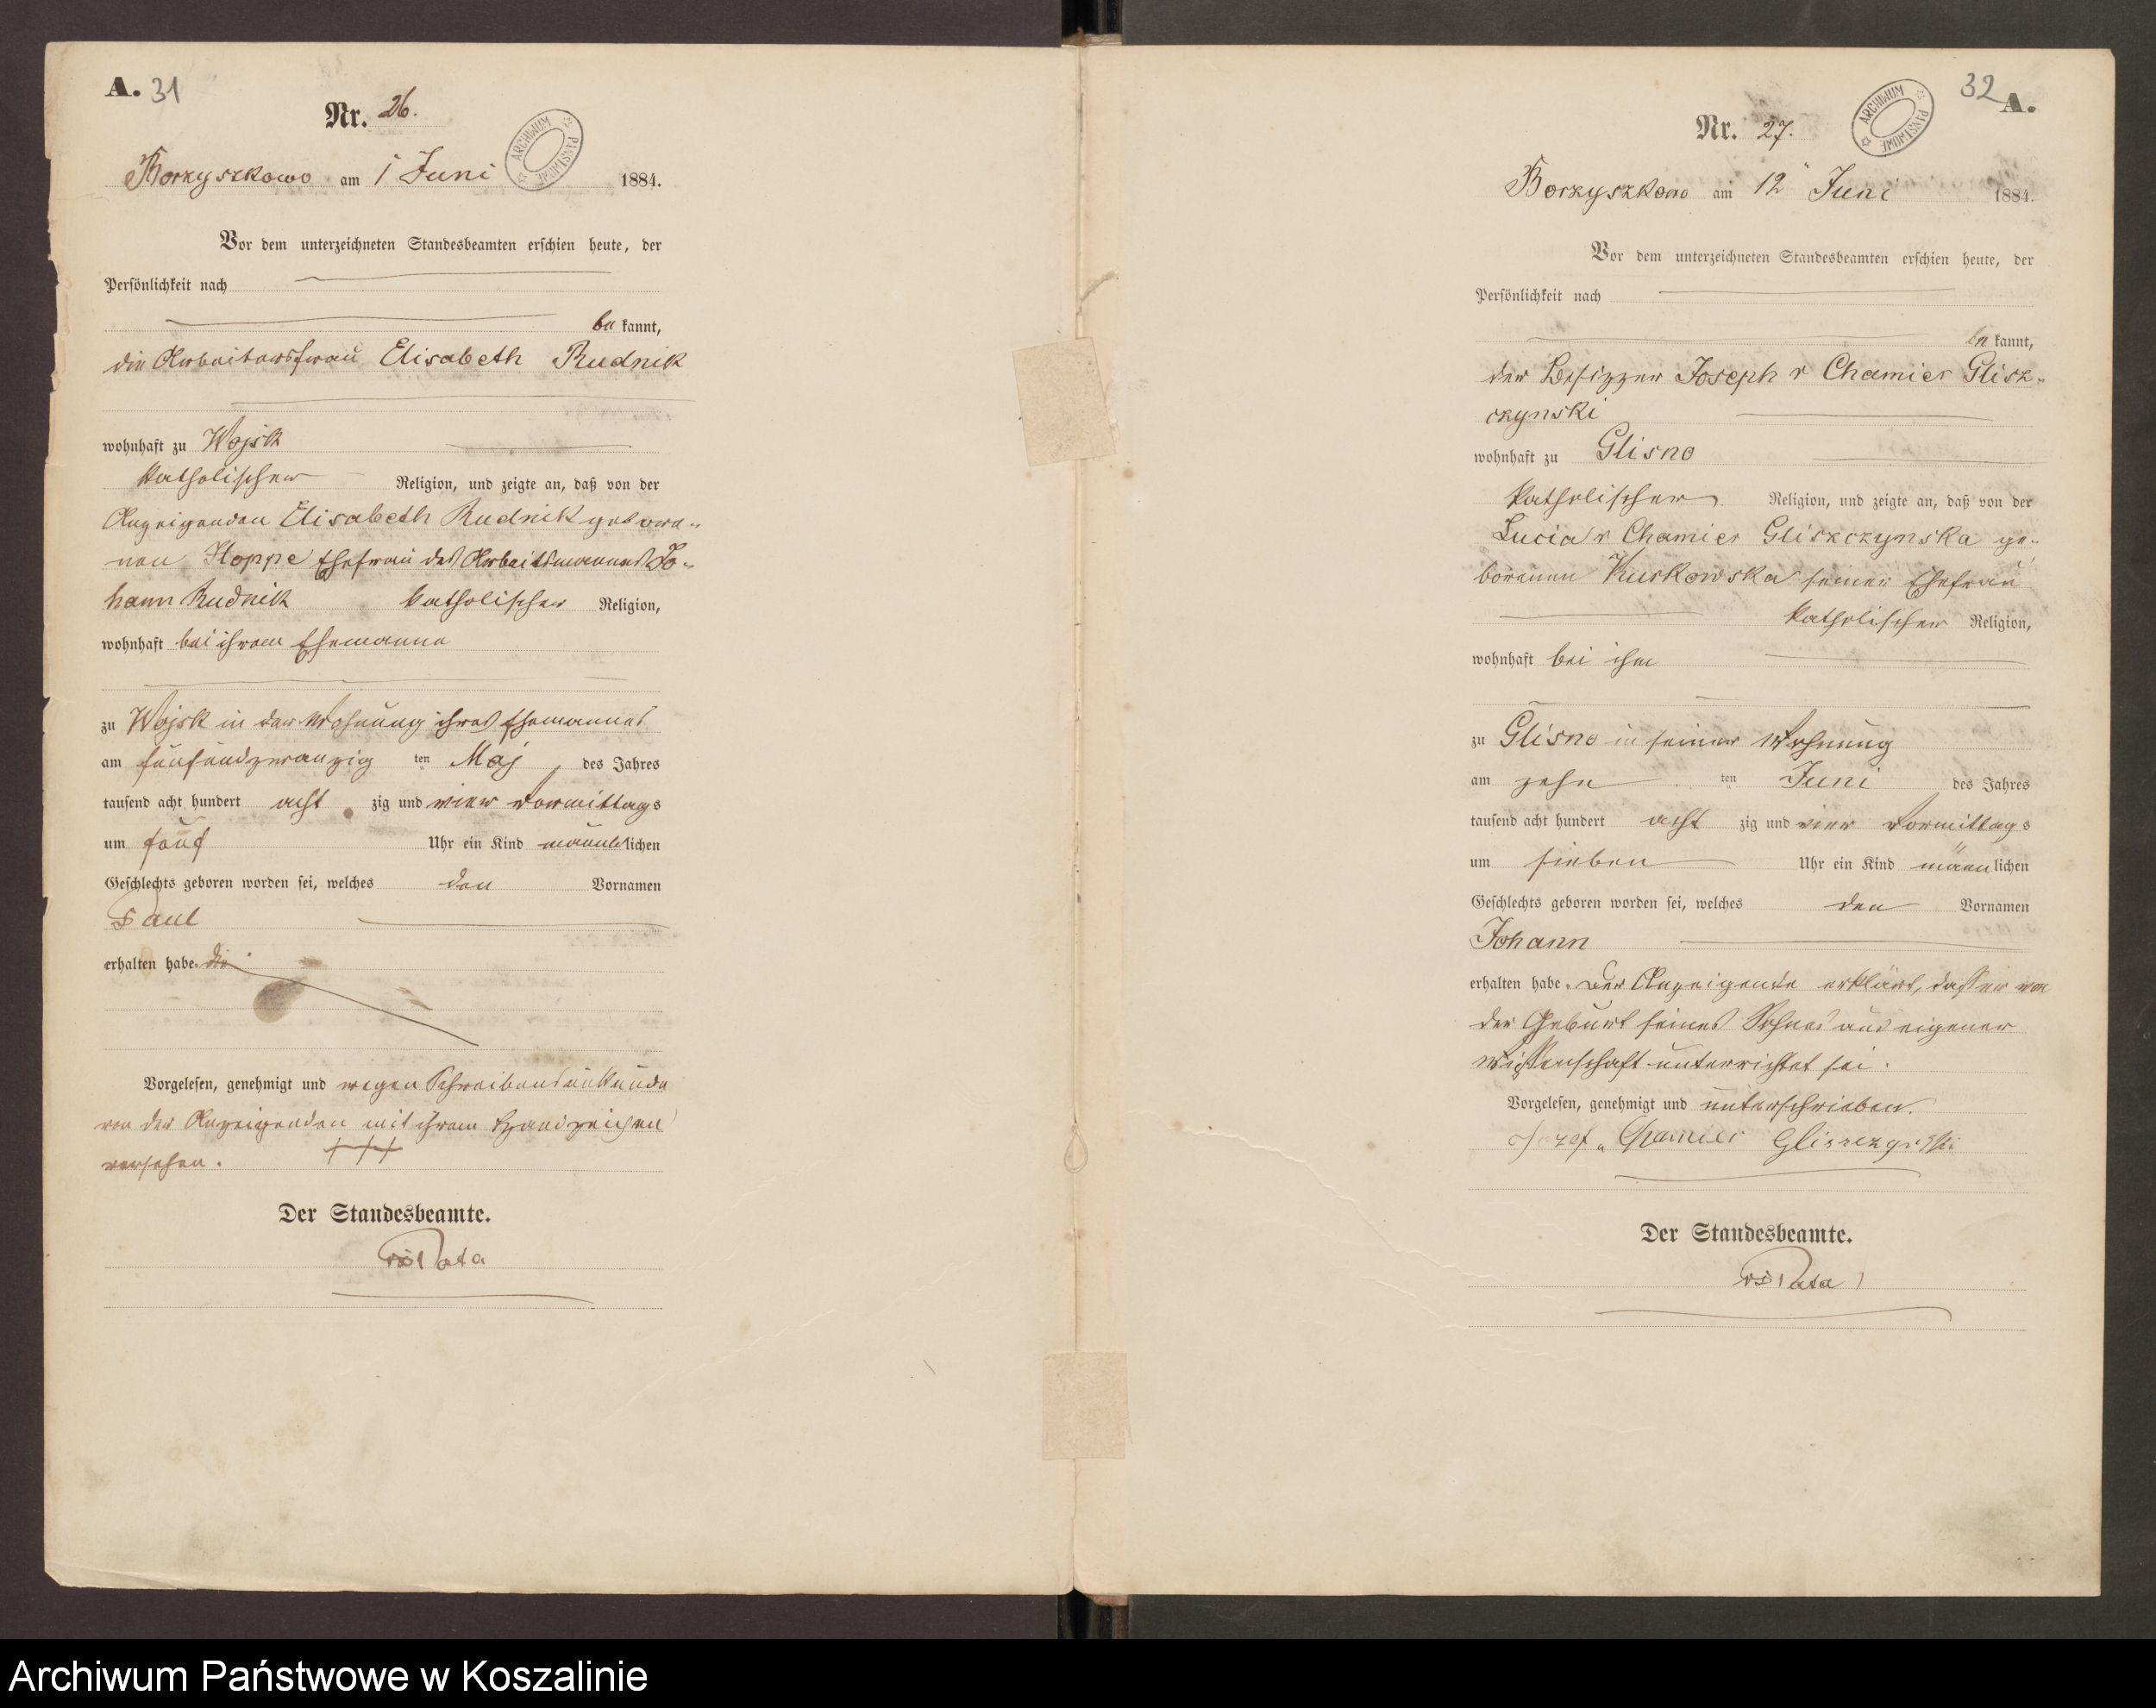 A. 31
Nr. 26.
ARCHIWUM PAŃSTWOWE
Borzyszkowo am 1 Juni 1884.
Vor dem unterzeichneten Standesbeamten erschien heute, der
Persönlichkeit nach
be kannt,
die Arbeitersfrau Elisabeth Rudnik
wohnhaft zu Wojsk
katholischer Religion, und zeigte an, daß von der
Anzeigenden Elisabeth Rudnik gebore-
nen Hoppe Ehefrau des Arbeitsmannes Jo-
hann Rudnik katholischer Religion,
wohnhaft bei ihrem Ehemanne
zu Wojsk in der Wohnung ihres Ehemannes
am fünfundzwanzig ten Maj des Jahres
tausend acht hundert acht zig und vier Vormittags
um fünf Uhr ein Kind männlichen
Geschlechts geboren worden sei, welches den Vornamen
Paul
erhalten habe. die
Vorgelesen, genehmigt und wegen Schreibensunkunde
von der Anzeigenden mit ihrem Handzeichen
versehen. +++
Der Standesbeamte.
32 A.
Nr. 27.
ARCHIWUM PAŃSTWOWE
Borzyszkowo am 12 Juni 1884.
Vor dem unterzeichneten Standesbeamten erschien heute, der
Persönlichkeit nach
be kannt,
der Besitzer Joseph v Chamier Glisz-
czynski
wohnhaft zu Glisno
katholischer Religion, und zeigte an, daß von der
Lucia v Chamier Gliszczynska ge-
borenen Kuskowska seiner Ehefrau
katholischer Religion,
wohnhaft bei ihm
zu Glisno in seiner Wohnung
am zehn ten Juni des Jahres
tausend acht hundert acht zig und vier Vormittags
um sieben Uhr ein Kind männlichen
Geschlechts geboren worden sei, welches den Vornamen
Johann
erhalten habe. Der Anzeigende erklärt, dass er von
der Geburt seines Sohnes aus eigener
Wissenschaft unterrichtet sei.
Vorgelesen, genehmigt und unterschrieben.
Chamier
Der Standesbeamte.
Archiwum Państwowe w Koszalinie